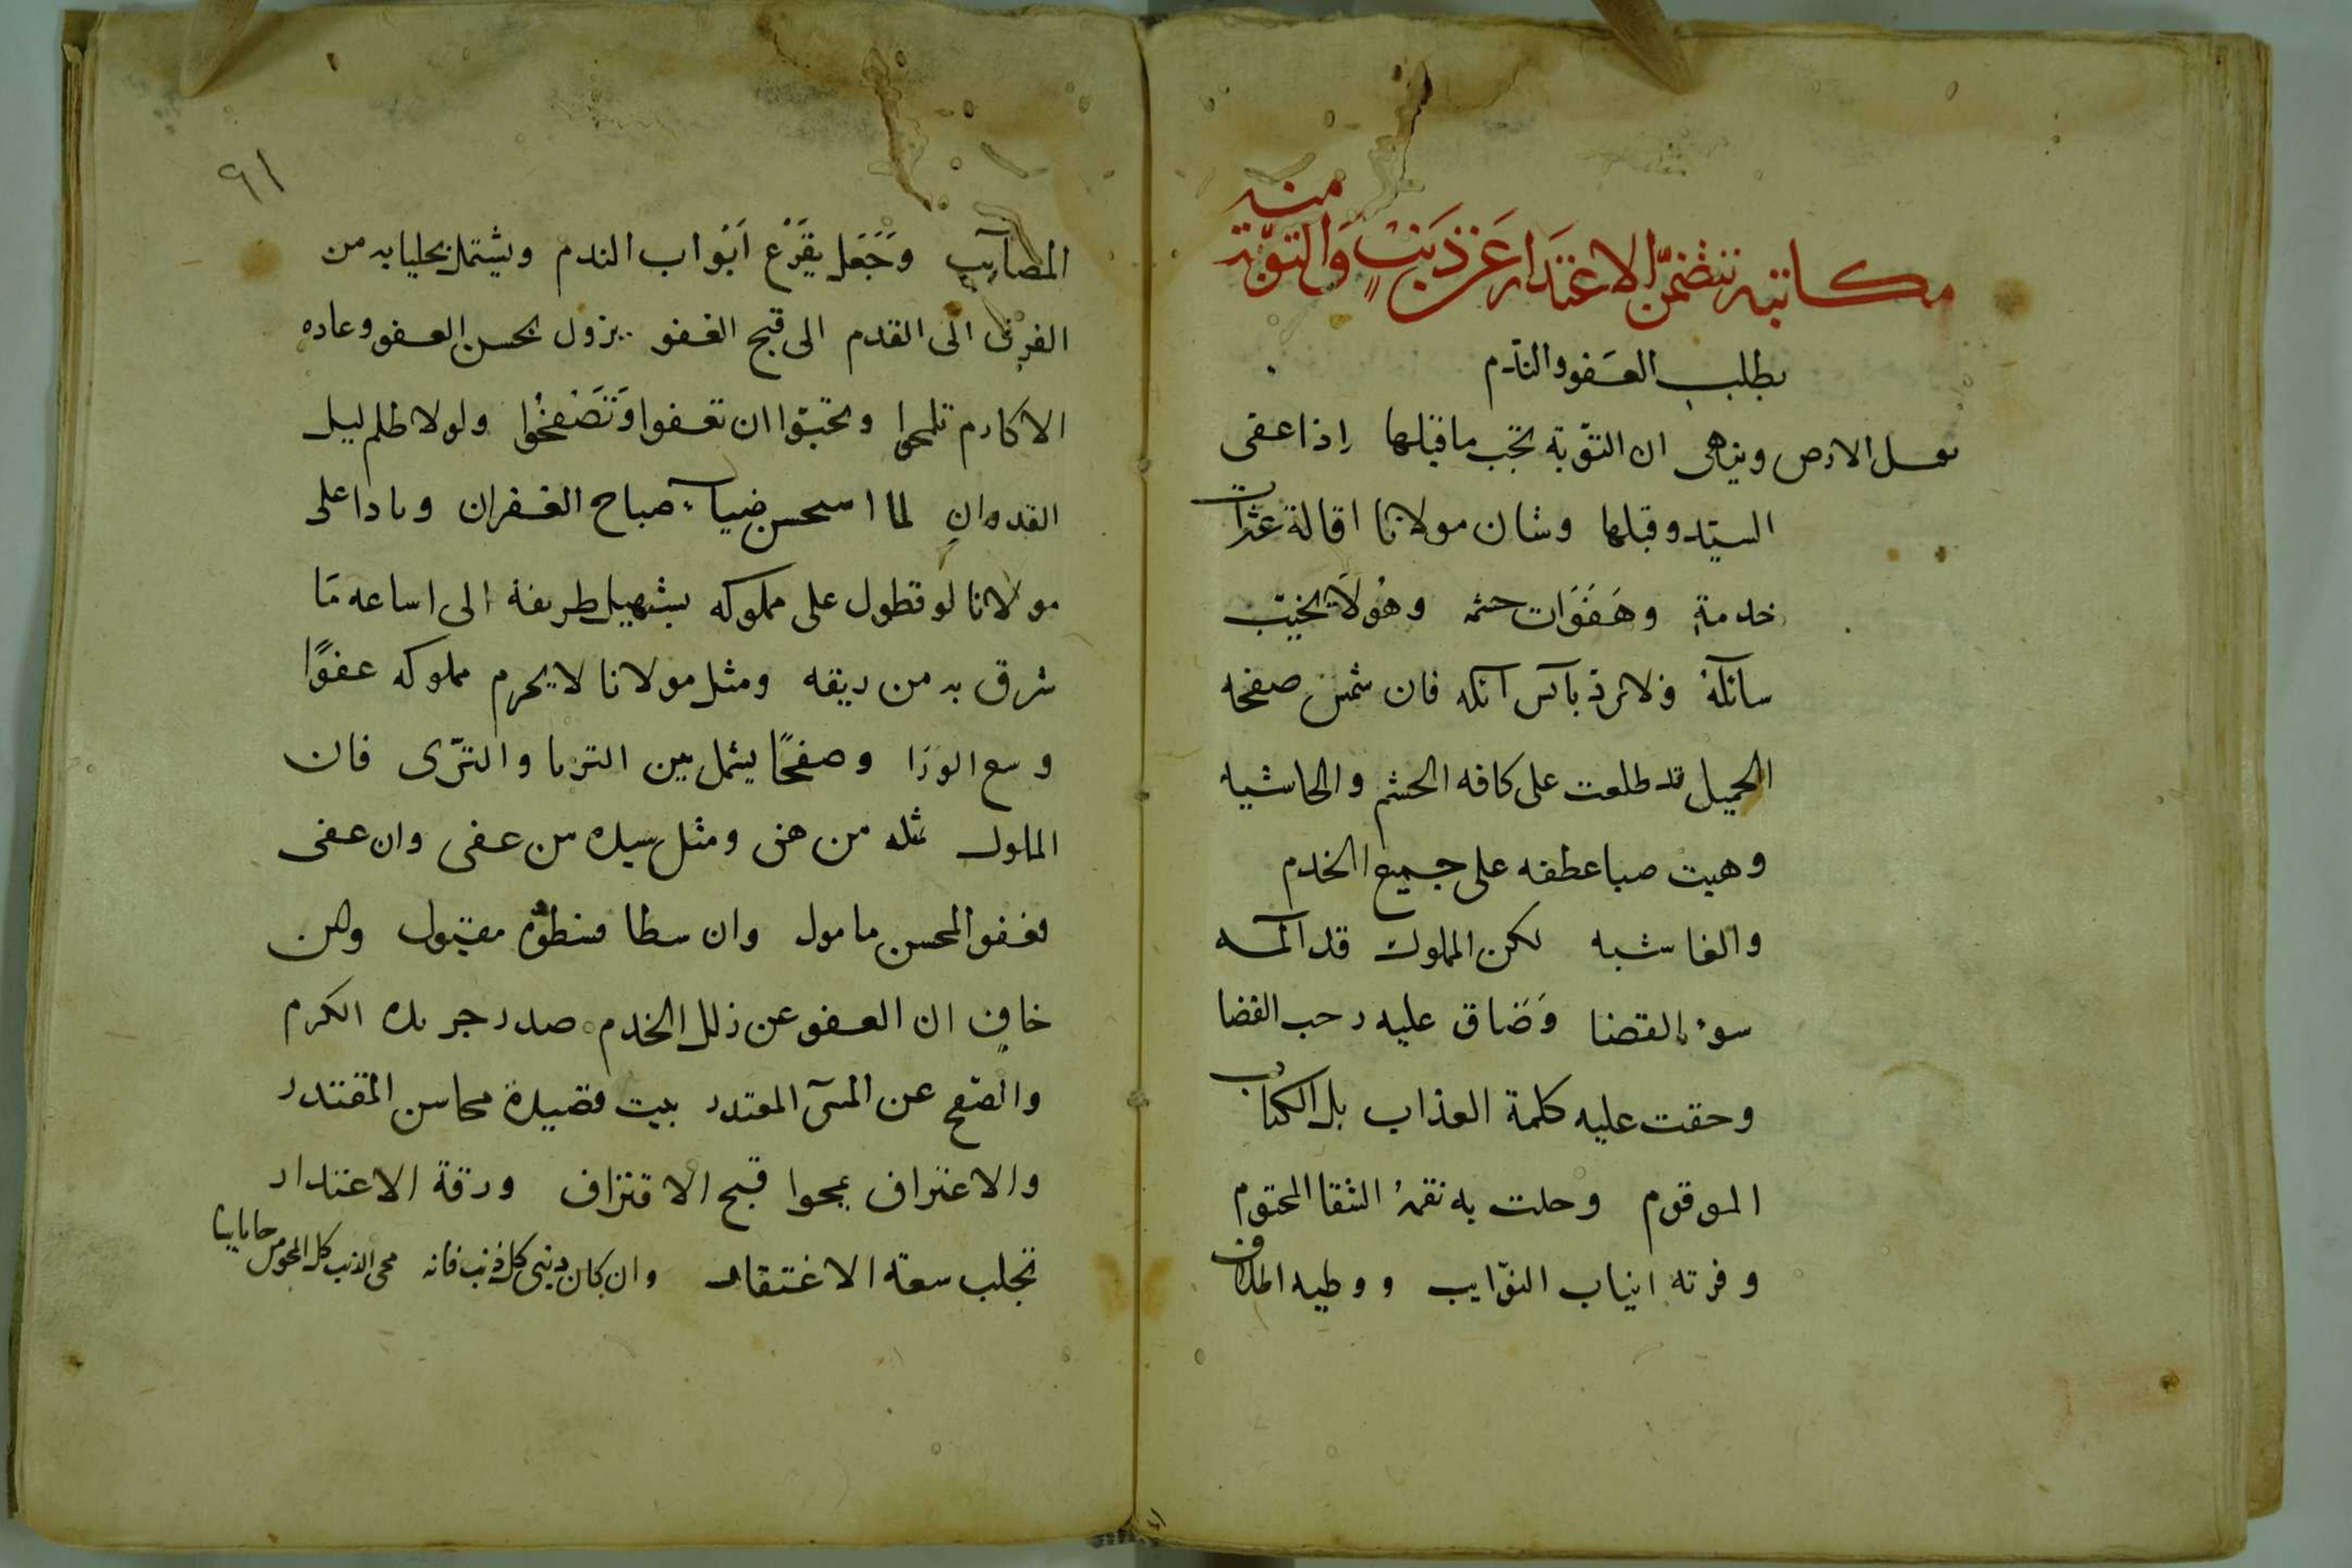 مكاتبه تتضمن الاعتذار عن ذنب والتوبة منه
بطلب العفو والندم
يقبل الارض وينهى ان التوبة تجب ما قبلها اذا عفى
السيد وقبلها وشان مولانا اقالة عثرات
خدمةٍ وهفوات حشمه وهو لا يخيب
سائله ولا يرد بآس آنله فان شمس صفحه
الجميل قد طلعت على كافه الحشم والحاشيه
وهبت صبا عطفه على جميع الخدم
والغاشيه لكن المملوك قد المـه
سوء القضا وضاق عليه رحب الفضا
وحقت عليه كلمة العذاب بل الكتاب
المرقوم وحلت به نقمة الشقا المحتوم
وفرته انياب النوايب ووطيه اظلاف
٩١
المصايب وجعل يقرع ابواب الندم ويشتمل بجلبابه من
الفرق الى القدم الى قبح الغفو يزول بحسن العفو وعاده
الاكارم تلمحوا وتحبوا ان تعفوا وتصفحوا ولولا ظلم ليل
العدوان لما استحسن ضياء صباح الغفران وماذا على
مولانا لو تطول على مملوكه بتسهيل طريقة الى اساعه مَا
شرق به من ريقه ومثل مولانا لا يحرم مملوكه عفوًا
وسع الورَا وصفحًا يشمل بين الثريا والثرى فان
المملوك مثله من هفى ومثل سيده من عفى وان عفى
فعفو المحسن مامول وان سطا فسطوه مقبول ولكن
خافٍ ان العفو عن زلل الخدم صدر جريده الكرم
والصفح عن المسئ المعتذر بيت قصيدة محاسن المقتدر
والاعتراف يمحوا قبح الاقتراف ورقة الاعتذار
تجلب سعة الاغتفار وان كان ذنبى كل ذنب فانه محى الذنب كل المحو من جا تايبا